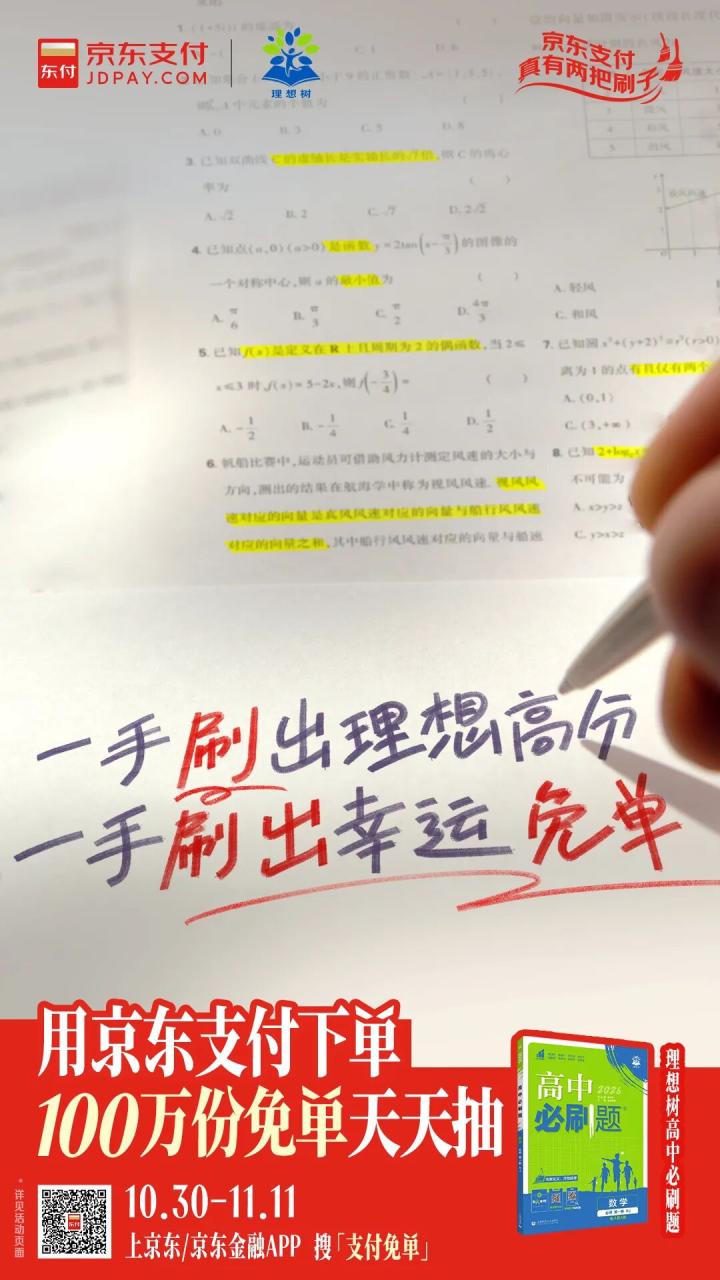 东付
京东支付
JDPAY.COM
理想树
京东支付
真有两把刷子
A. 0 B. 3 C. 5 D. 8
3. 已知双曲线 C 的虚轴长是实轴长的√7倍,则 C 的离心
率为 ( )
A. √2 B. 2 C. √7 D. 2√2
4. 已知点(a,0)(a>0)是函数 y=2tan(x-π/3)的图像的
一个对称中心,则 a 的最小值为 ( )
A. π/6 B. π/3 C. π/2 D. 4π/3
5. 已知 f(x)是定义在 R 上且周期为 2 的偶函数,当 2≤
x≤3 时,f(x)=5-2x,则 f(-3/4)= ( )
A. -1/2 B. -1/4 C. 1/4 D. 1/2
6. 帆船比赛中,运动员可借助风力计测定风速的大小与
方向,测出的结果在航海学中称为视风风速.视风风
速对应的向量是真风风速对应的向量与船行风风速
对应的向量之和,其中船行风风速对应的向量与船速
A. 轻风
C. 和风
7. 已知圆 x²+(y+2)²=r²(r>0)
离为 1 的点有且仅有两个
A. (0,1)
C. (3,+∞)
8. 已知 2+log₂x
不可能为
A. x>y>z
C. y>x>z
一手刷出理想高分
一手刷出幸运免单
用京东支付下单
100万份免单天天抽
*详见活动页面
10.30-11.11
上京东/京东金融APP 搜「支付免单」
高中 2026
必刷题
数学
理想树高中必刷题